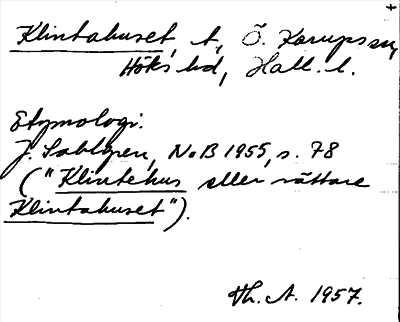 Klintahuset, t, Ö. Karups sn,
Höks hd, Hall. l.
Etymologi:
J. Sahlgren, NoB 1955, s. 78
("Klintehus eller rättare
Klintahuset").
Th. A. 1957.